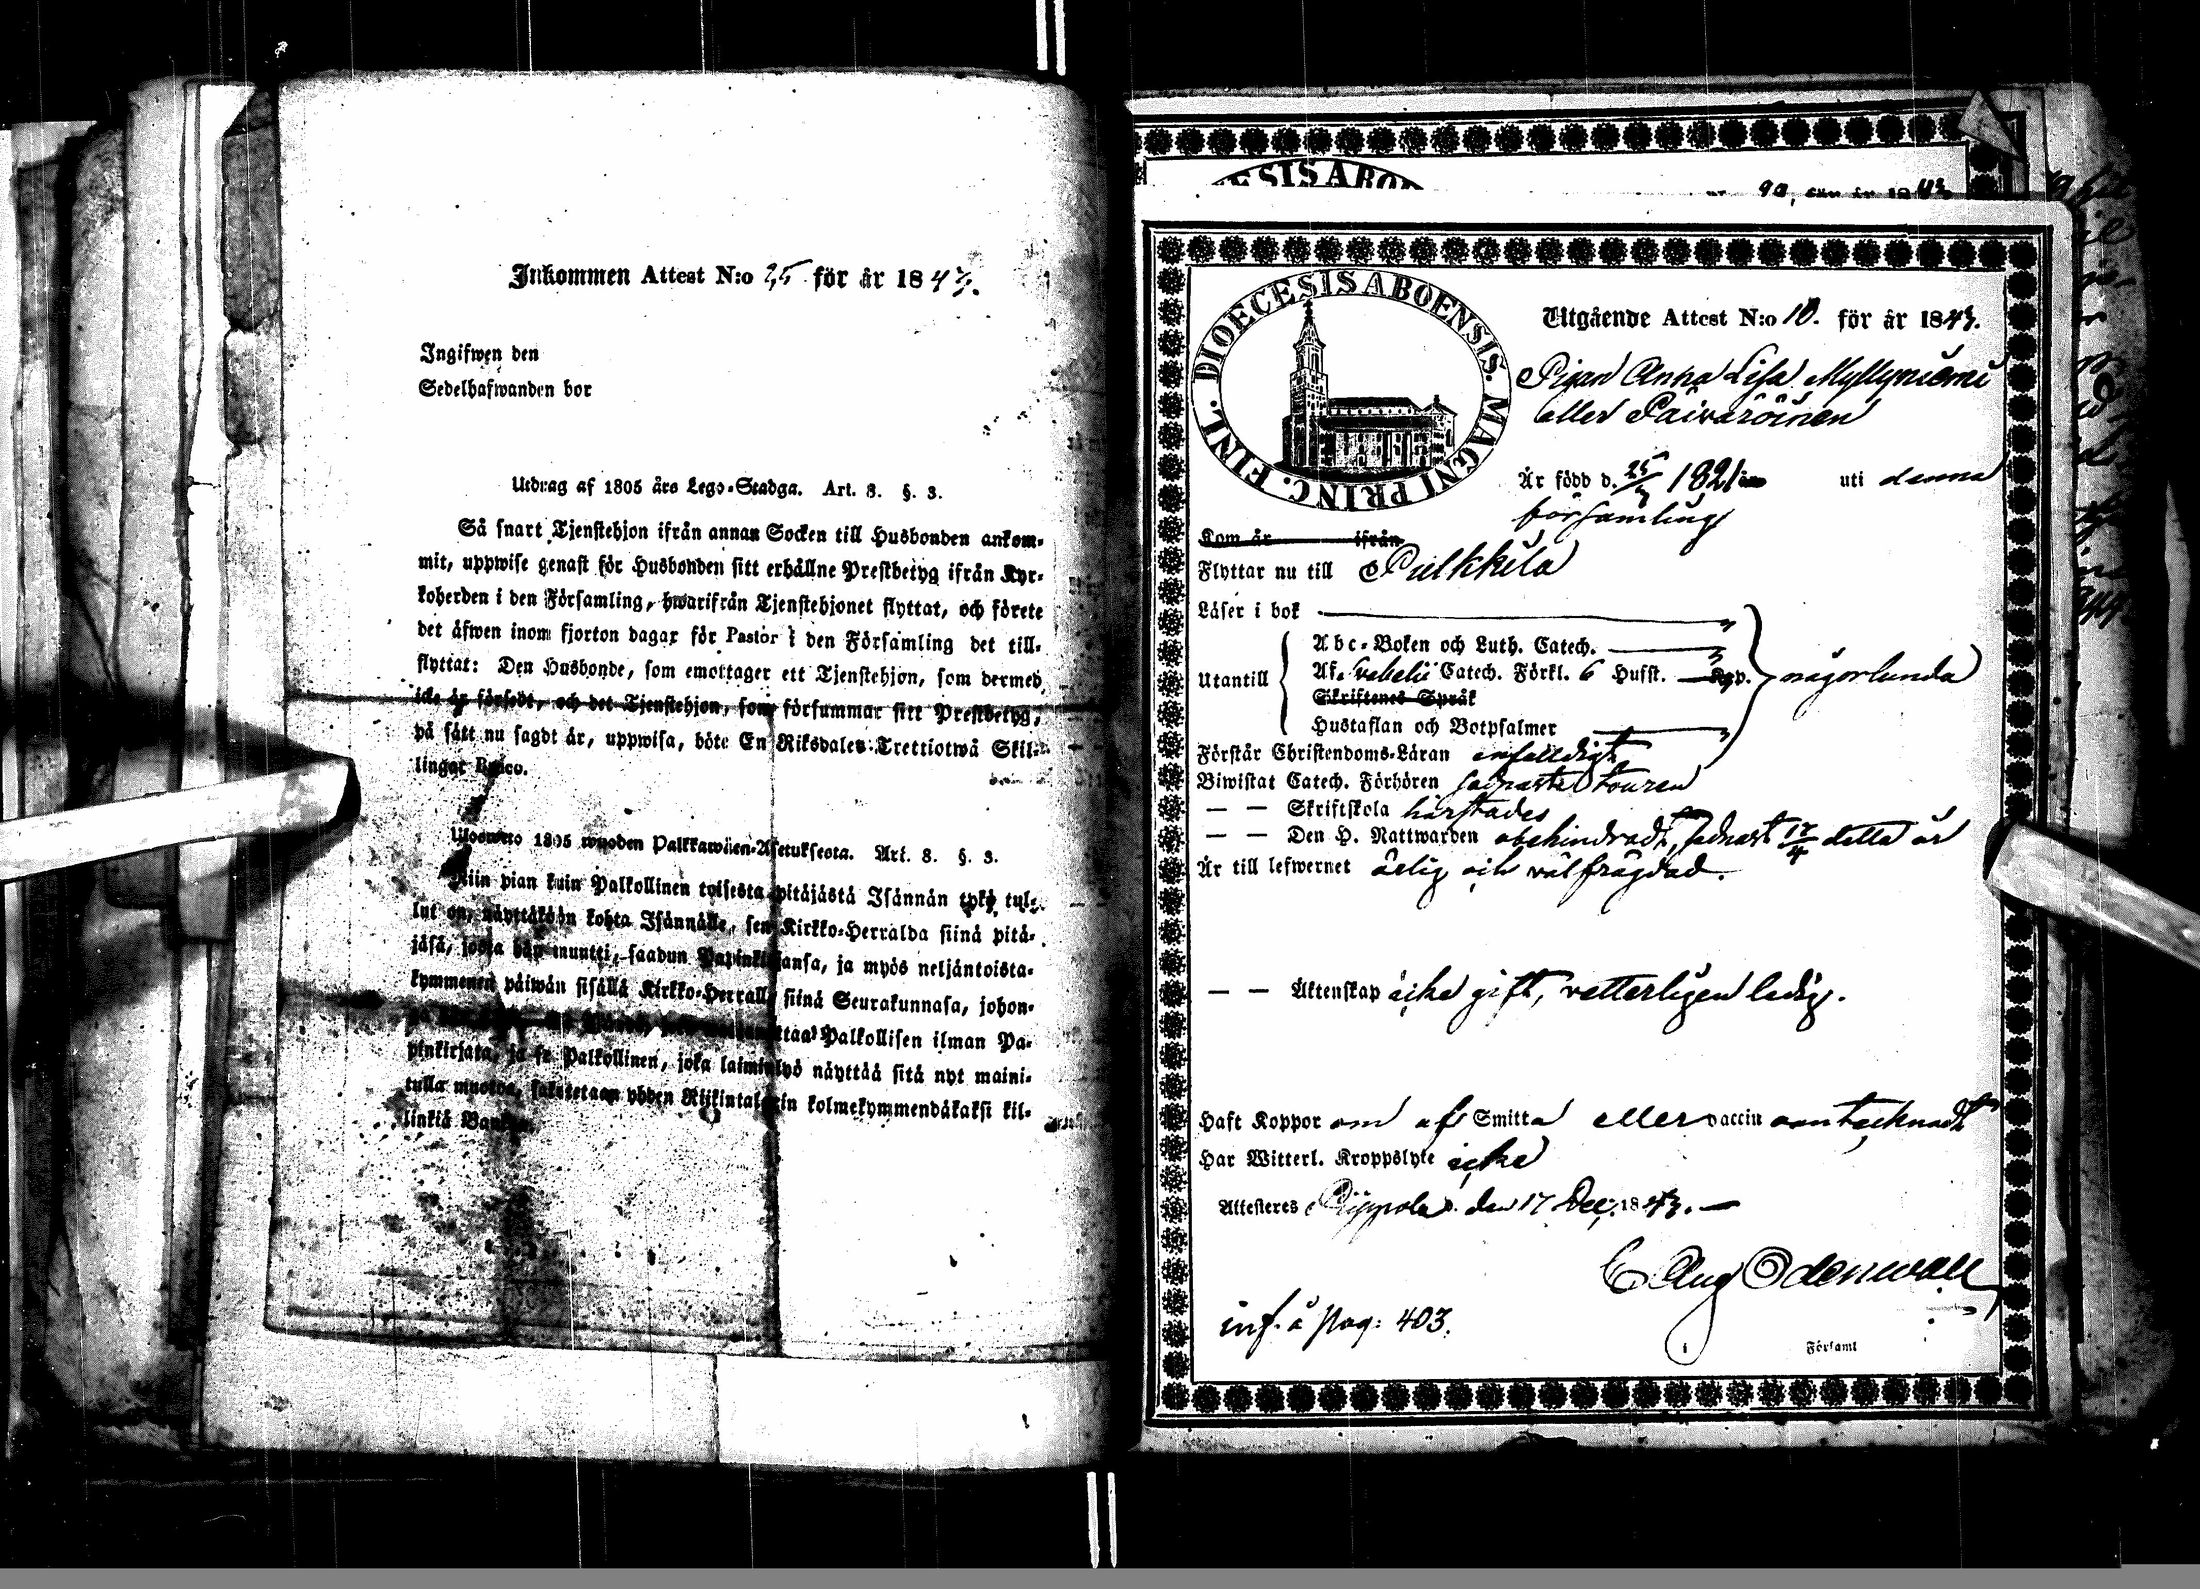 Inkommen Attest N:o 25 för år 1843.
Ingifwen den
Sedelhafwanden bor
Utdrag af 1805 års Lego-Stadga. Art. 8. §. 3.
Så snart Tjenstehjon ifrån annan Socken till Husbonden ankom-
mit, uppwise genast för Husbonden sitt erhållne Prestbetyg ifrån Kyr-
koherden i den Församling, hwarifrån Tjenstehjonet flyttat, och förete
det äfwen inom fjorton dagar för Pastor i den Församling det till-
flyttat: Den Husbonde, som emottager ett Tjenstehjon, som dermed
icke är försedt, och det Tjenstehjon, som försummar sitt Prestbetyg,
på sätt nu sagdt är, uppwisa, böte En Riksdaler Trettiotwå Skil-
lingar Banco.
Ulosweto 1805 wuoden Palkkawäen-Asetuksesta. Art. 8. §. 3.
Niin pian kuin Palkollinen toisesta pitäjästä Isännän tykö tul-
lut on, näyttäköön kohta Isännälle, sen Kirkko-Herralda siinä pitä-
jäsä, josta hän muutti, saadun Papinkirjansa, ja myös neljäntoista-
kymmenen päiwän sisällä Kirkko-Herralle siinä Seurakunnasa, johon-
Palkollisen ilman Pa-
pinkirjata, ja se Palkollinen, joka laiminlyö näyttää sitä nyt maini-
tulla muotoa, sakotetaan yhden Riikintalarin kolmekymmendäkaksi kil-
linkiä Bankos.
DIOECESIS ABOEN
N:o 90, för år 1843
DIOECESIS ABOENSIS. MAGNI PRINC. FINL.
Utgående Attest N:o 10. för år 1843.
Pigan Anna Lisa Myllyniemi
eller Päivaröinen
År född d. 25/3 1821 uti denna
församling
Kom år ifrån
Flyttar nu till Pulkkila
Läser i bok
Abc-Boken och Luth. Catech.
Utantill Af Svebelii Catech. Förkl. 6 Hufst. Kap. någorlunda
Skriftenes Språk
Hustaflan och Botpsalmer
Förstår Christendoms-Läran enfaldigt
Biwistat Catech. Förhören sednaste touren
— — Skriftskola härstädes
— — Den H. Nattwarden obehindradt, sednast 17/4 detta år
År till lefwernet ärlig och välfrägdad.
— — Äktenskap icke gift, vetterligen ledig.
Haft Koppor om af Smitta eller vaccin oantecknadt
Har Witterl. Kroppslyte icke
Attesteres Piippola den 17 Dec. 1843. —
C Aug Odenwall
inf. å pag: 403.
Församl